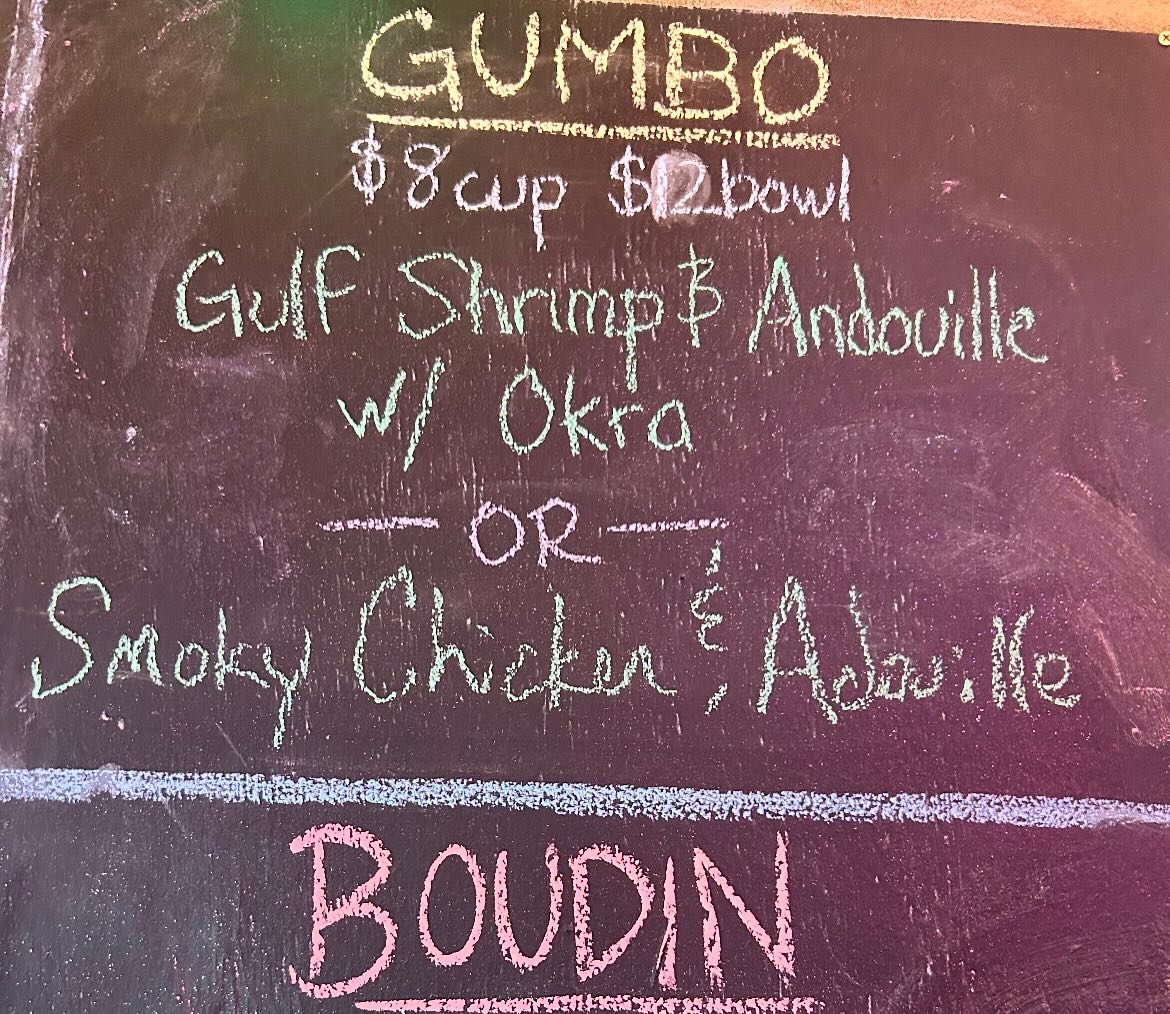 GUMBO
$8 cup $12 bowl
Gulf Shrimp & Andouille
w/ Okra
— OR —
Smoky Chicken & Adouille
BOUDIN